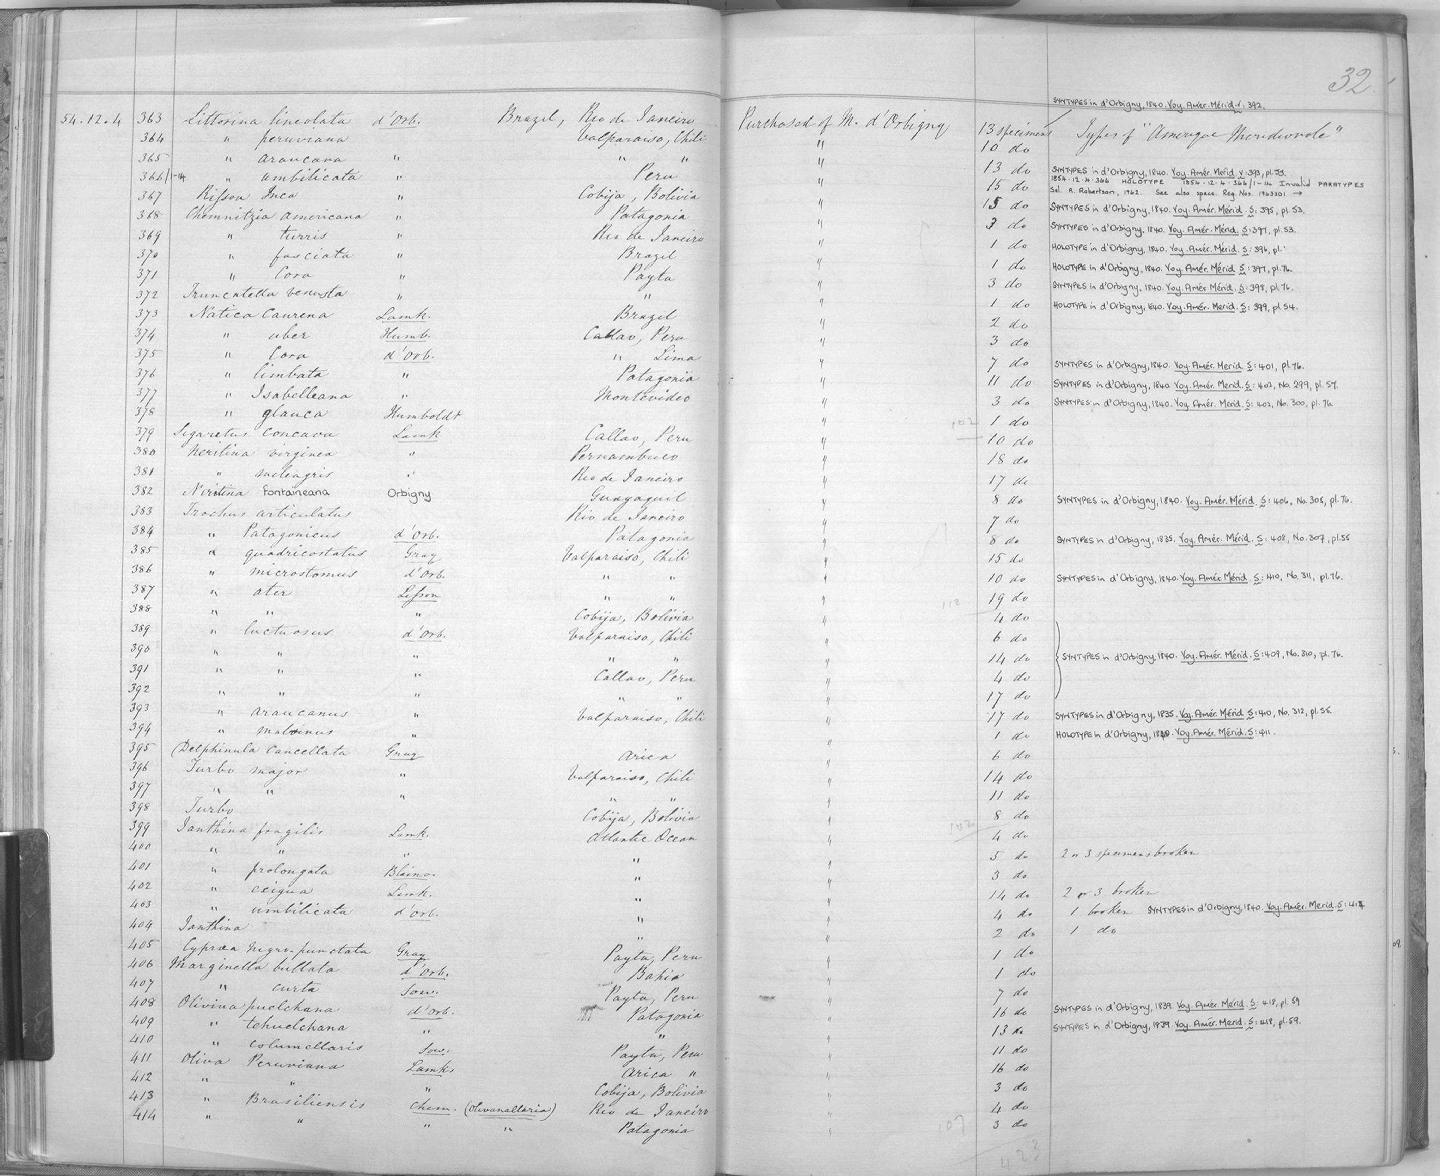 32
SYNTYPES in d'Orbigny, 1840. Voy. Amér. Mérid. 5: 392.
54.12.4 363 Littorina lineolata d'Orb. Brazil, Rio de Janeiro Purchased of M. d'Orbigny 13 specimens Types of "Amerique Meridionale"
364 " peruviana Valparaiso, Chili " 10 do
365 " araucana " " " " 13 do SYNTYPES in d'Orbigny, 1840. Voy. Amér. Mérid. 5: 393, pl. 53.
366/1-14 " umbilicata " Peru " 15 do 1854.12.4.366 HOLOTYPE 1854.12.4.366/1-14 Invalid PARATYPES
Sel. R. Robertson, 1962. See also spec. Reg. Nos. 1963301 →
367 Rissoa Inca " Cobija, Bolivia " 15 do SYNTYPES in d'Orbigny, 1840. Voy. Amér. Mérid. 5: 395, pl. 53.
368 Chemnitzia americana " Patagonia " 3 do SYNTYPES in d'Orbigny, 1840. Voy. Amér. Mérid. 5: 397, pl. 53.
369 " turris " Rio de Janeiro " 1 do HOLOTYPE in d'Orbigny, 1840. Voy. Amér. Mérid. 5: 396, pl.
370 " fasciata " Brazil " 1 do HOLOTYPE in d'Orbigny, 1840. Voy. Amér. Mérid. 5: 397, pl. 76.
371 " Cora " Payta " 3 do SYNTYPES in d'Orbigny, 1840. Voy. Amér. Mérid. 5: 398, pl. 76.
372 Truncatella venusta " " " 1 do HOLOTYPE in d'Orbigny, 1840. Voy. Amér. Mérid. 5: 399, pl. 54.
373 Natica Caurena Lamk. Brazil " 2 do
374 " uber Humb. Callao, Peru " 3 do
375 " Cora d'Orb. " Lima " 7 do SYNTYPES in d'Orbigny, 1840. Voy. Amér. Mérid. 5: 401, pl. 76.
376 " limbata " Patagonia " 11 do SYNTYPES in d'Orbigny, 1840. Voy. Amér. Mérid. 5: 402, No. 299, pl. 57.
377 " Isabelleana " Montevideo " 3 do SYNTYPES in d'Orbigny, 1840. Voy. Amér. Mérid. 5: 402, No. 300, pl. 76
378 " glauca Humboldt " 1 do
379 Sigaretus concava Lamk Callao, Peru " 10 do
380 Neritina virginea " Pernambuco " 18 do
381 " meleagris " Rio de Janeiro " 17 do
382 Niritina Fontaineana Orbigny Guayaquil " 8 do SYNTYPES in d'Orbigny, 1840. Voy. Amér. Mérid. 5: 406, No. 305, pl. 76.
383 Trochus articulatus Rio de Janeiro " 7 do
384 " Patagonicus d'Orb. Patagonia " 8 do SYNTYPES in d'Orbigny, 1835. Voy. Amér. Mérid. 5: 408, No. 307, pl. 55
385 " quadricostatus Gray Valparaiso, Chili " 15 do
386 " microstomus d'Orb. " " " 10 do SYNTYPES in d'Orbigny, 1840. Voy. Amér. Mérid 5: 410, No. 311, pl. 76.
387 " ater Lesson " " " 19 do
388 " " " Cobija, Bolivia " 4 do
389 " luctuosus d'Orb. Valparaiso, Chili " 6 do
390 " " " " " " 14 do SYNTYPES in d'Orbigny, 1840. Voy. Amér. Mérid. 5: 409, No. 310, pl. 76.
391 " " " Callao, Peru " 4 do
392 " " " " " " 17 do
393 " araucanus " Valparaiso, Chili " 17 do SYNTYPES in d'Orbigny, 1835. Voy. Amér. Mérid. 5: 410, No. 312, pl. 55.
394 " malouinus " " 1 do HOLOTYPE in d'Orbigny, 1840. Voy. Amér. Mérid. 5: 411.
395 Delphinula cancellata Gray Arica " 6 do
396 Turbo major " Valparaiso, Chili " 14 do
397 " " " " " " 11 do
398 Turbo Cobija, Bolivia " 8 do
399 Ianthina fragilis Lamk. Atlantic Ocean " 4 do
400 " " " " " 5 do 2 or 3 specimens broken
401 " prolongata Blainv. " " 3 do
402 " exigua Lamk. " " 14 do 2 or 3 broken
403 " umbilicata d'Orb. " " 4 do 1 broken SYNTYPES in d'Orbigny, 1840. Voy. Amér. Mérid. 5: 414
404 Ianthina " " 2 do 1 do
405 Cypræa nigro-punctata Gray Payta, Peru " 1 do
406 Marginella bullata d'Orb. Bahia " 1 do
407 " curta Sow. Payta, Peru " 7 do
408 Olivina puelchana d'Orb. Patagonia " 16 do SYNTYPES in d'Orbigny, 1839. Voy. Amér. Mérid. 5: 418, pl. 59
409 " tehuelchana " " " 13 do SYNTYPES in d'Orbigny, 1839. Voy. Amér. Mérid. 5: 418, pl. 59.
410 " columellaris Sow. Payta, Peru " 11 do
411 Oliva Peruviana Lamk. Arica " " 16 do
412 " " " Cobija, Bolivia " 3 do
413 " Brasiliensis Chem. (olivancillaria) Rio de Janeiro " 4 do
414 " " " " Patagonia " 3 do
107
423